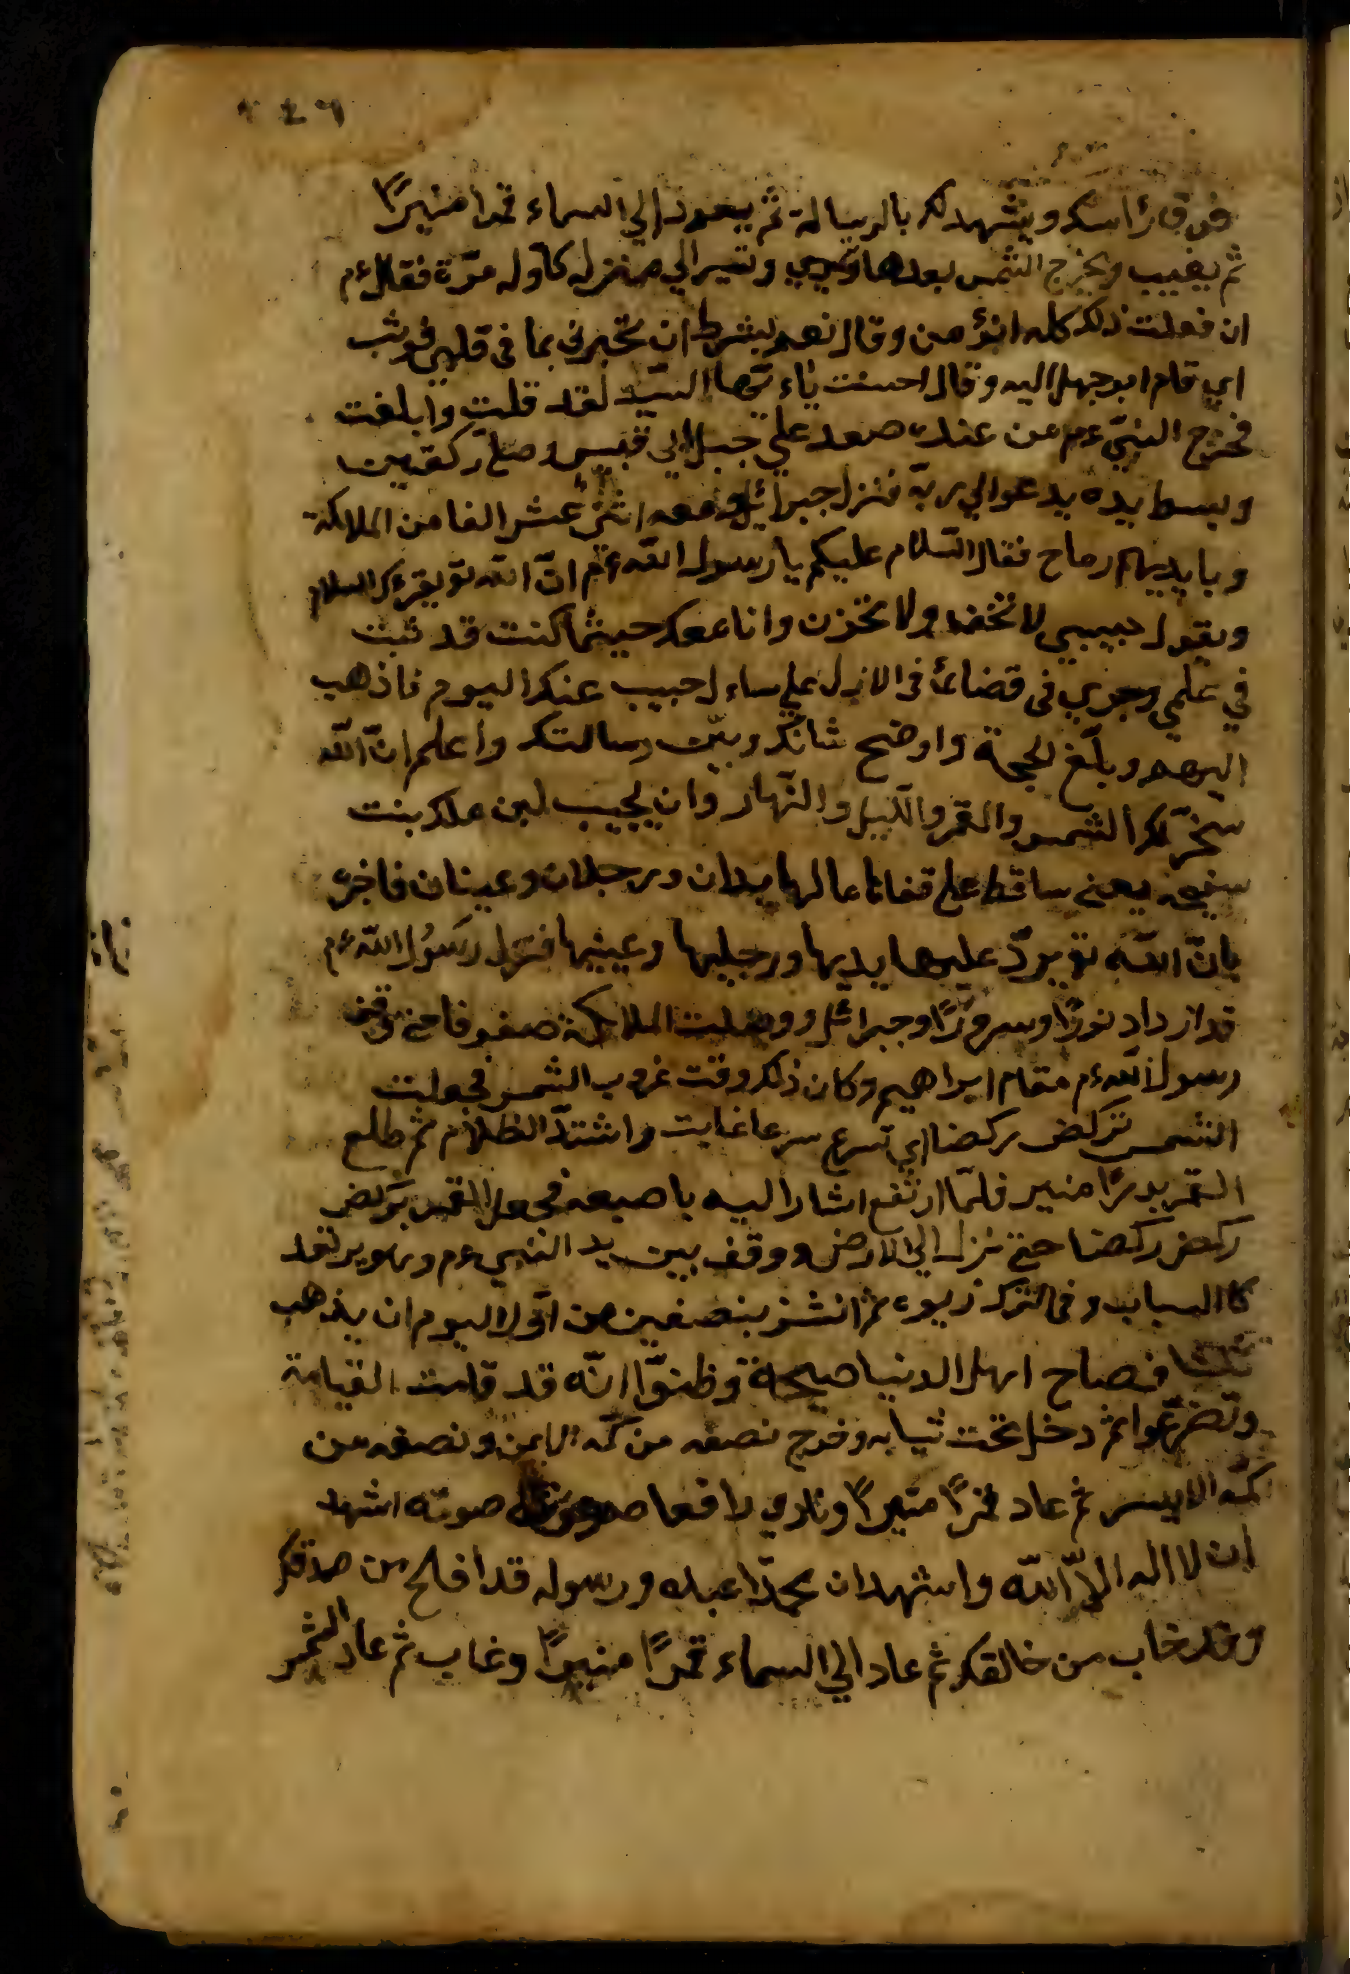 فوق رٔاسك ويشهد لك بالرسالة ثم يعود الي السماء قمرا منيرًا
ثم يغيب ويخرج الشمس بعدها وتسير الي منزله كاوله مرّة فقال ءم
ان فعلت ذلك كله اتؤمن وقال نعم بشرط ان تخبرني بما في قلبي فوثب
اي قام ابو جهل اليه وقال احسنت ياء يّها السيّد لقد قلت وابلغت
فخرج النبيّ ءم من عنده صعد علي جبل ابي قبيس وصلّ ركعتين
وبسط يده يدعو الي ربّه فنزل جبرائل ومعه اثني عشر الفا من الملائكة
وبايديهم رماح فقال السّلام عليكم يا رسول اللّه ءم انّ اللّه تو يقرءك السلام
ويقول حبيبي لا تخف ولا تحزن وانا معك حيثما كنت قد ثبت
في علمي وجري في قضائ في الازل علي ساءل حبيب عنك اليوم فاذهب
اليهم وبلّغ لحجة واوضح شانك وبيّن رسالتك واعلم انّ اللّه
سخّر لك الشمس والقمر والّليل والنّهار وان لحبيب لبن ملك بنت
سفيحه يعني ساقط علي قفاها ما لها يدان ورجلان وعينان فاخبره
بانّ اللّه تو يردّ عليها يديها ورجليها وعينيها فنزل رسول اللّه ءم
قد ازداد نورًا وسرورًا وجبرائل ووصلت الملائكة صفوفا حتي وقف
رسول اللّه ءم مقام ابراهيم وكان ذلك وقت غروب الشمس فجعلت
الشمس تركض ركضا اي تسرع سرعا غابت واشتدّ الظلام ثم طلع
القمر بدرًا منير فلمّا ارتفع اشار اليه باصبعه فجعل القمر يركض
ركض ركضا حتي نزل الي الارض ووقف بين يد النبي ءم وهو يرتعد
كالسباب وفي الترك ثم انشق بنصفين من اوّل اليوم ان يذهب
فصاح اهل الدنيا صيحة وظنوّا انّه قد قامت القيامة
وتضرّعوا ثم دخل تحت ثيابه وخرج نصفه من كمّه الايمن ونصفه من
كمّه الايسر ثم عاد قمرًا منيرًا ونادي رافعا صوته اشهد
ان لا اله الاّ اللّه واشهد ان محمدًا عبده ورسوله قد افلح من صدقك
وقد خاب من خالفك ثم عاد الي السماء قمرًا منيرًا وغاب ثم عاد الشمس